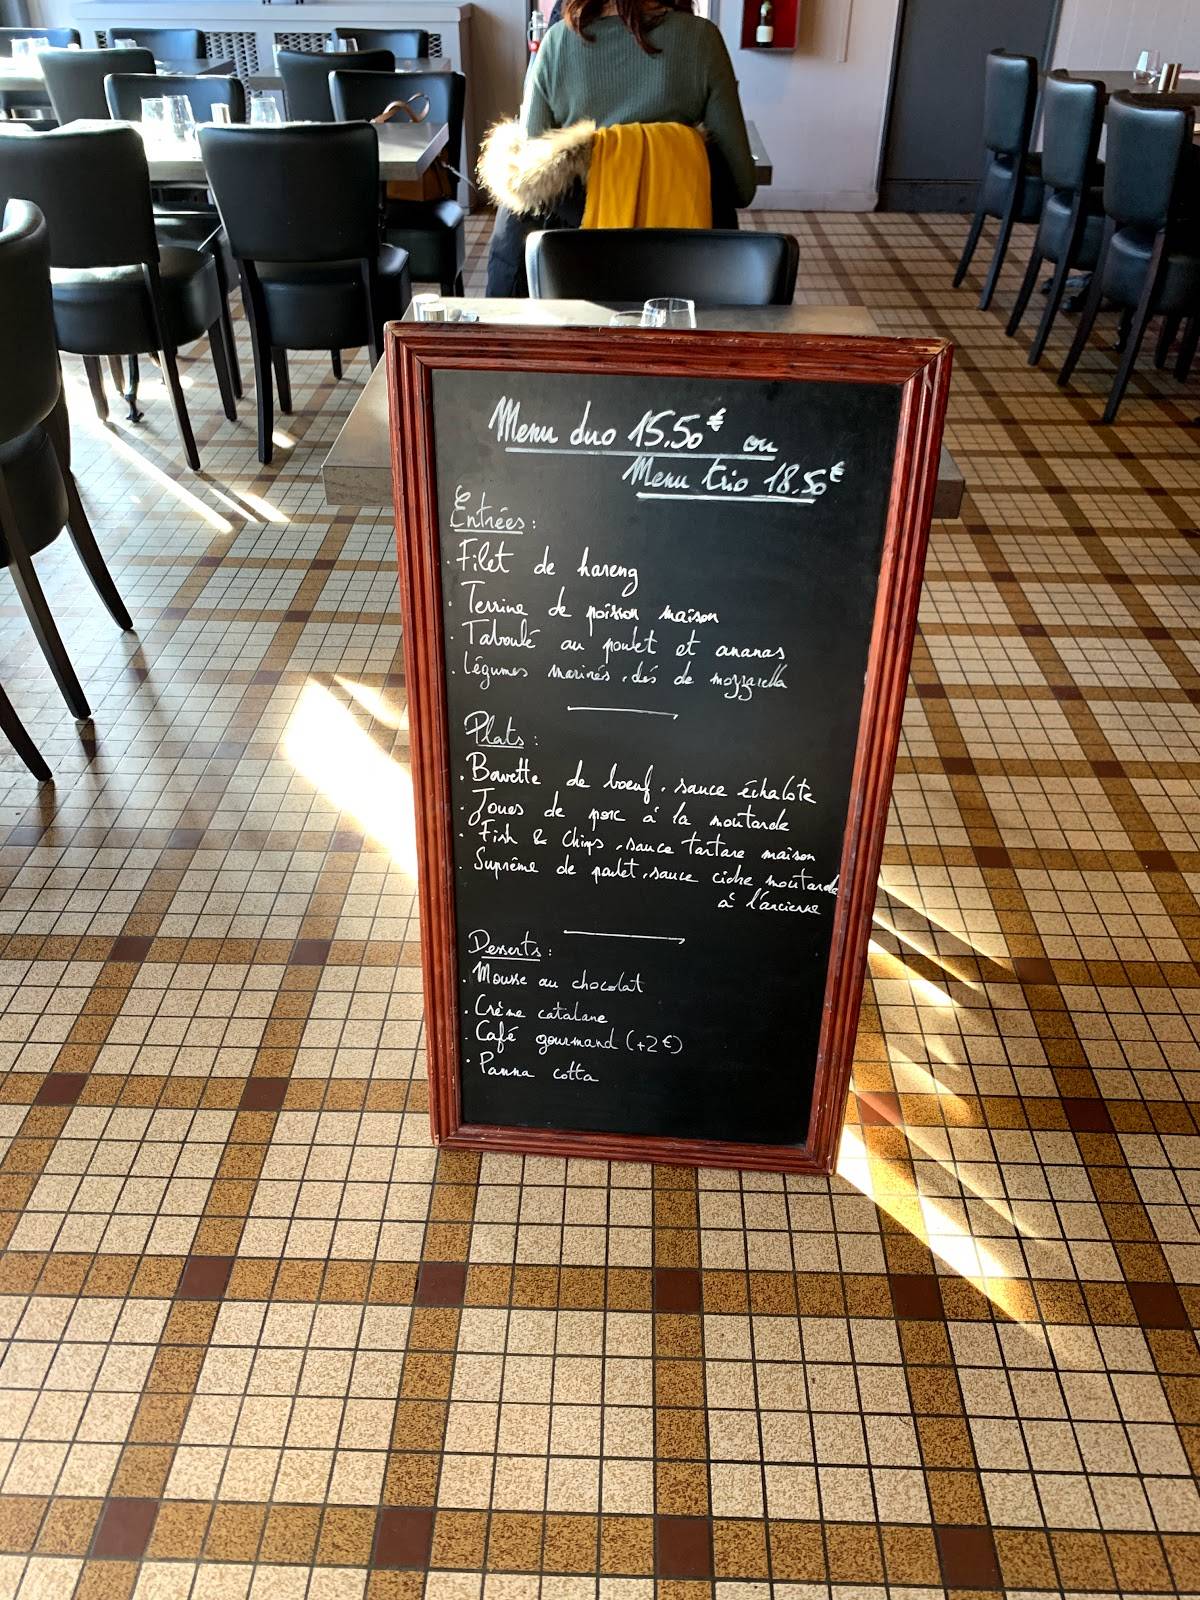 Menu duo 15.50€ ou
Menu trio 18.50€
Entrées :
. Filet de hareng
. Terrine de poisson maison
. Taboulé au poulet et ananas
. Légumes marinés, dés de mozzarella
Plats :
. Bavette de boeuf, sauce échalote
. Joues de porc à la moutarde
. Fish & Chips, sauce tartare maison
. Suprême de poulet, sauce cidre moutarde
à l'ancienne
Desserts :
. Mousse au chocolat
. Crème catalane
. Café gourmand (+2€)
. Panna cotta